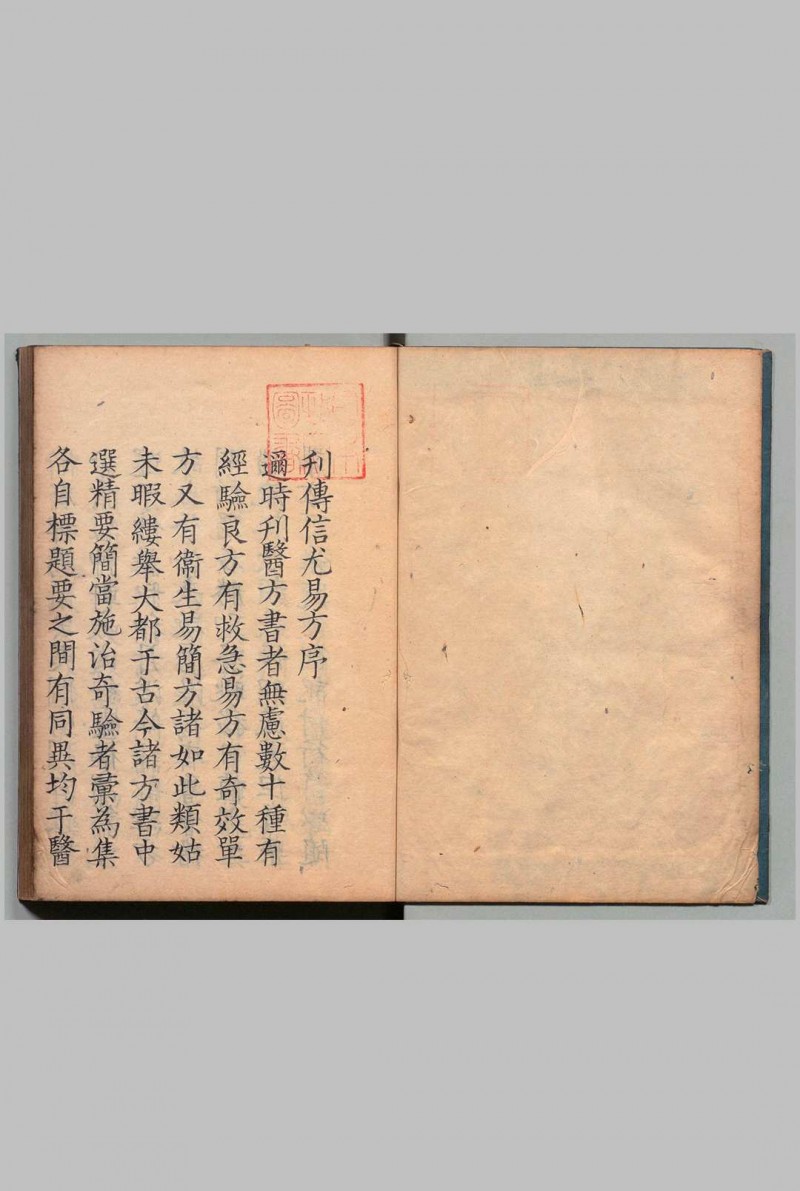 刋傳信尤易方序
邇時刋醫方書者無慮數十種有
經驗良方有救急易方有奇效單
方又有衞生易簡方諸如此類姑
未暇縷舉大都于古今諸方書中
選精要簡當施治奇驗者彚為集
各自標題要之間有同異均于醫